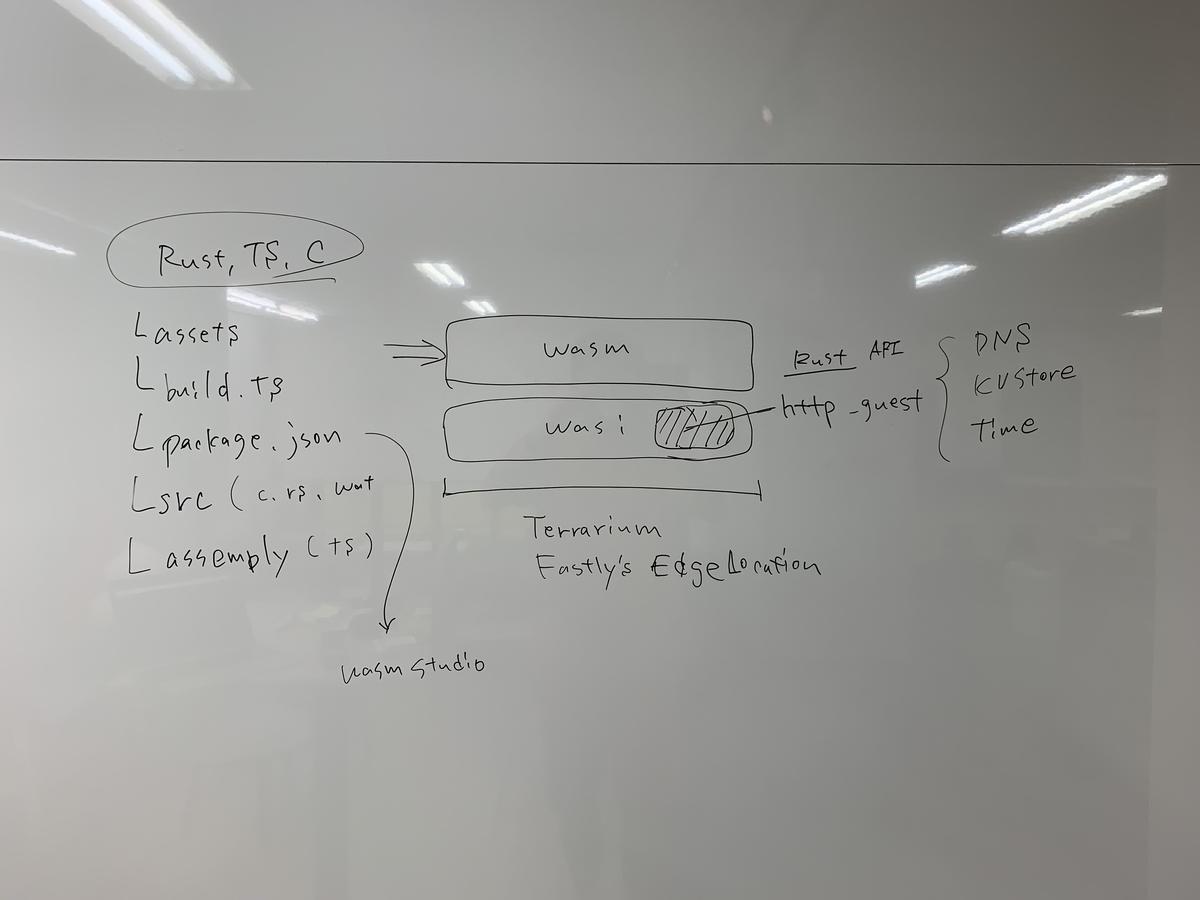 Rust, TS, C
assets
build.ts
package.json
src (c. rs. wat
assembly (ts)
wasm studio
wasm
wasi
Terrarium
Fastly's Edge Location
Rust API
http_guest
DNS
KVStore
Time